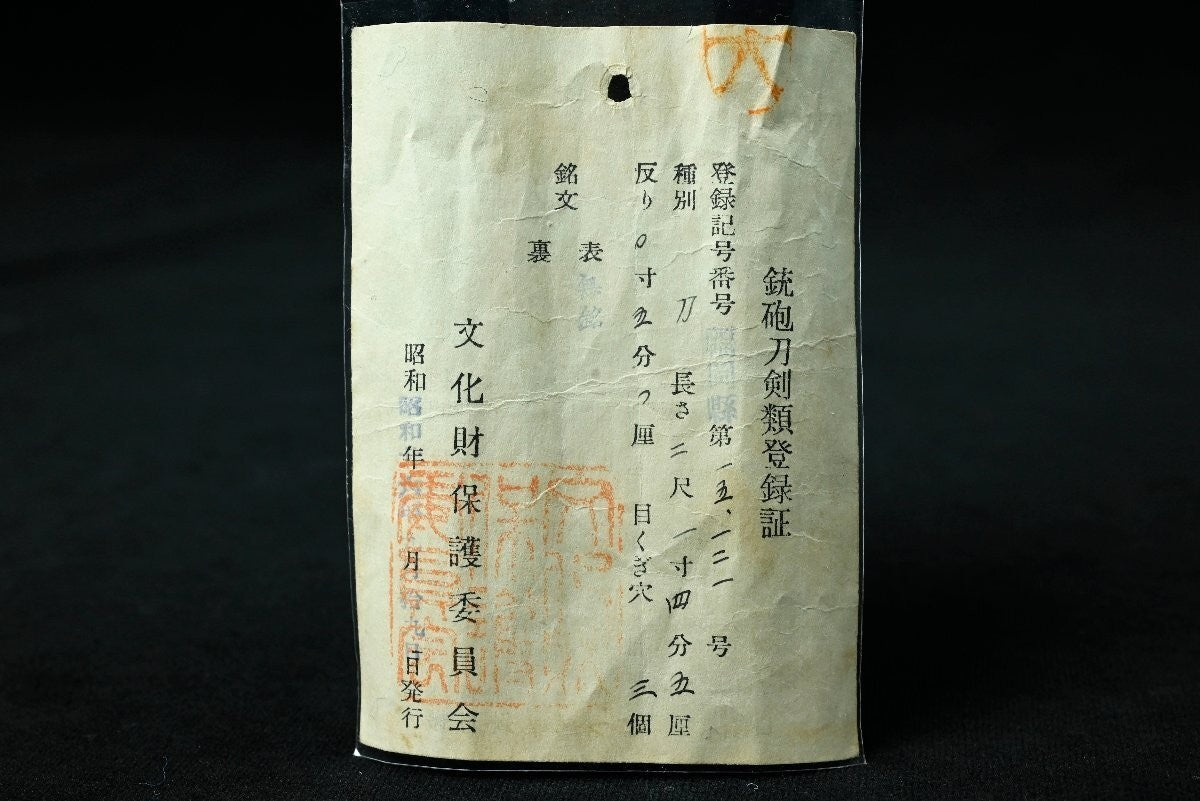 銃砲刀剣類登録証
登録記号番号 福岡縣 第一五、一二一号
種別 刀 長さ二尺一寸四分五厘
反り〇寸五分〇厘 目くぎ穴三個
銘文
表 無銘
裏
文化財保護委員会
昭和昭和年月拾九日発行